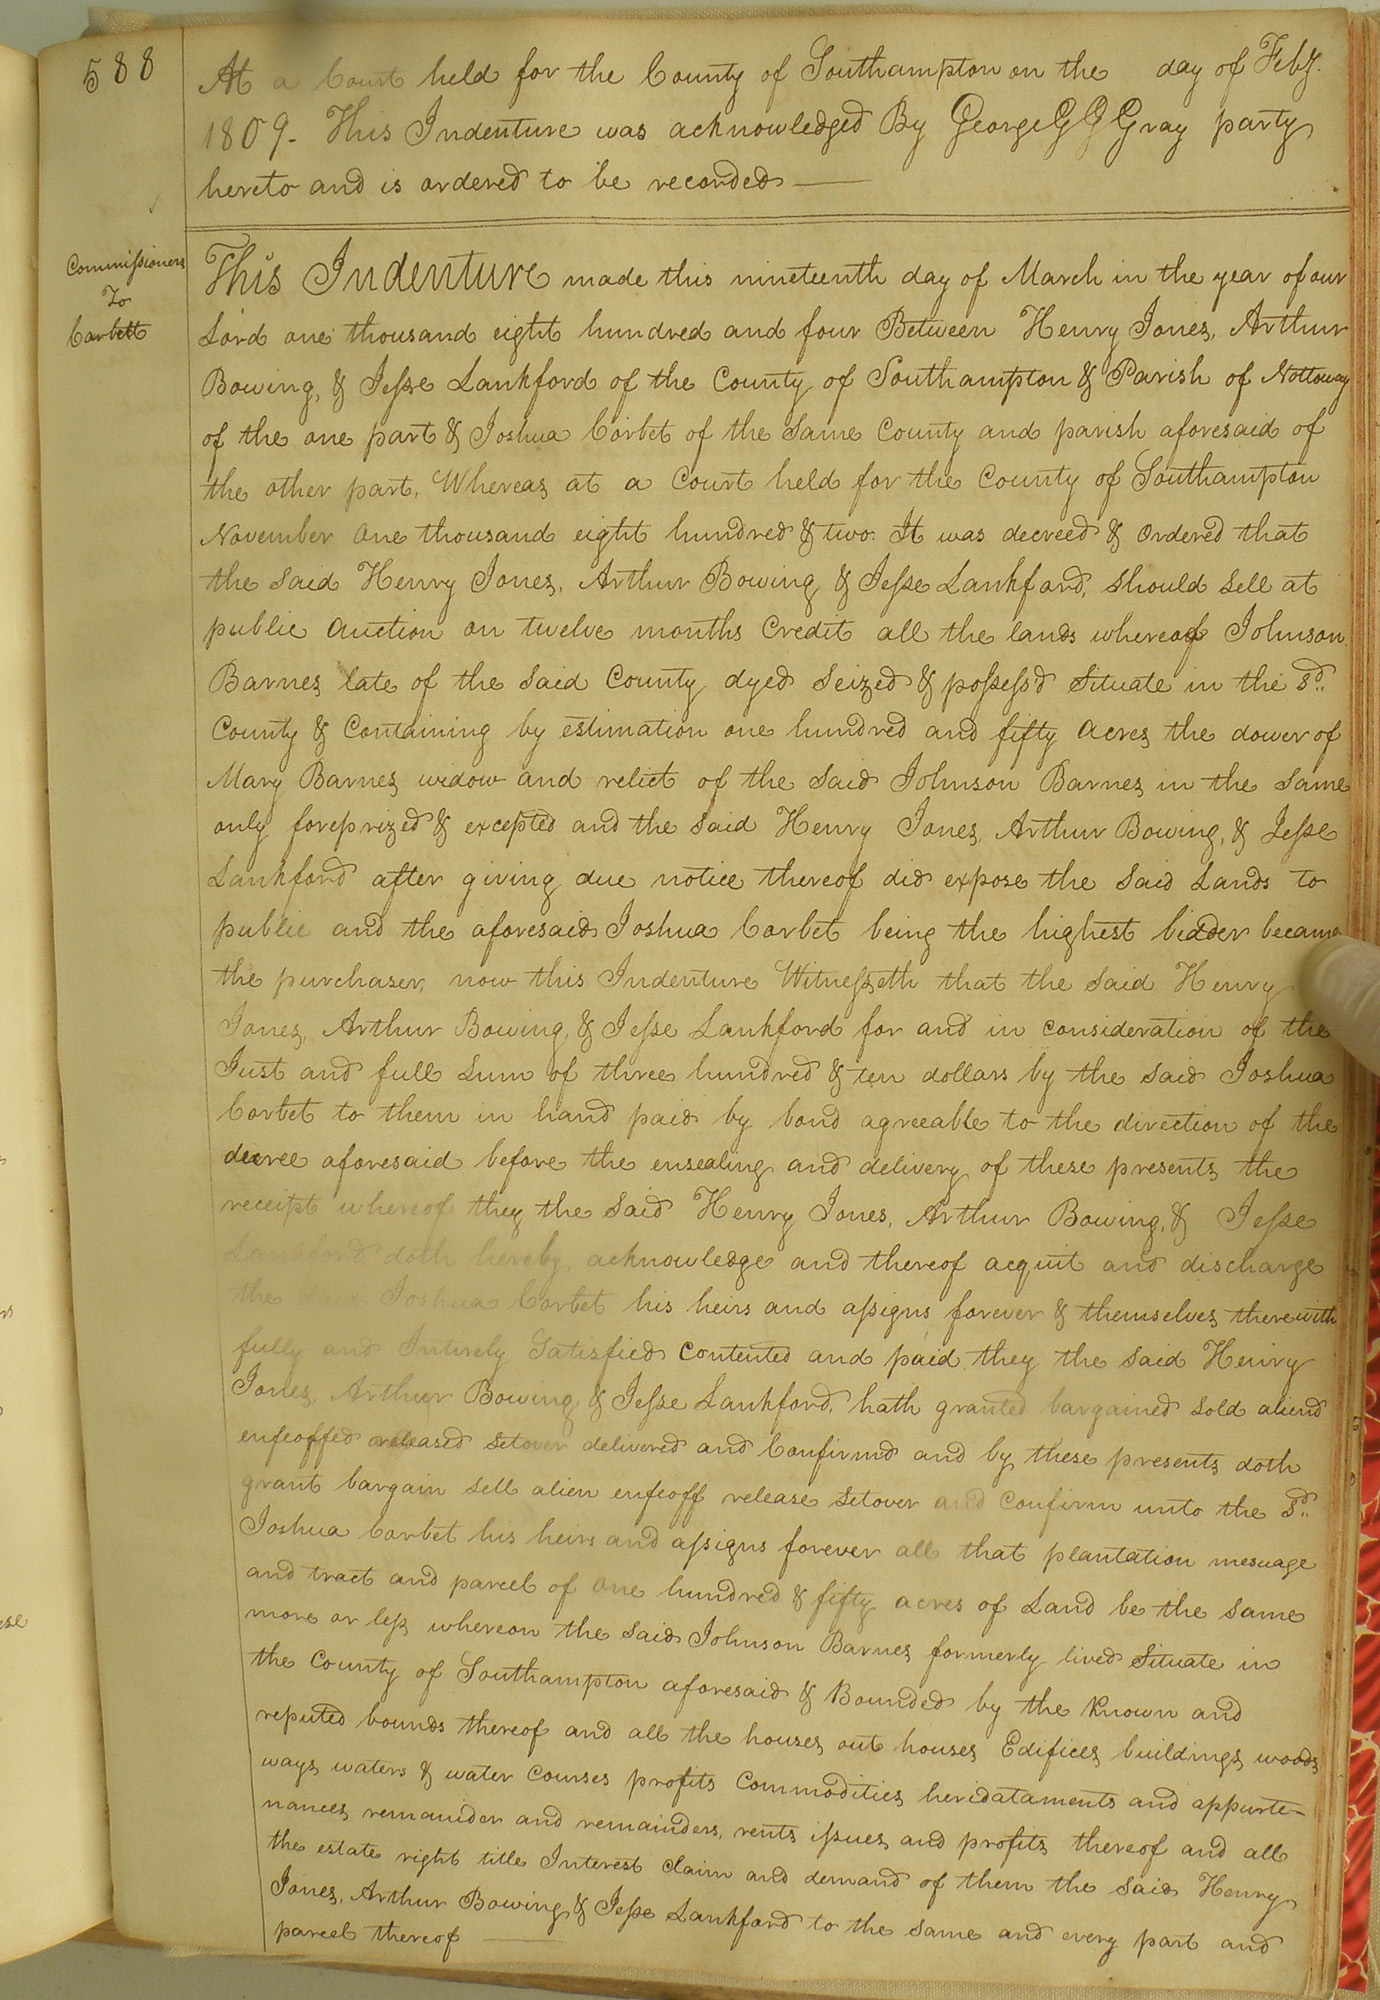 588
At a Court held for the County of Southampton on the day of Feby.
1809. This Indenture was acknowledged By George G G Gray party
hereto and is ordered to be recorded
Commissioners
To
Corbett
This Indenture made this nineteenth day of March in the year of our
Lord one thousand eight hundred and four Between Henry Jones, Arthur
Bowing, & Jesse Lankford of the County of Southampton & Parish of Nottoway
of the one part & Joshua Corbet of the Same County and parish aforesaid of
the other part, Whereas at a Court held for the County of Southampton
November One thousand eight hundred & two. It was decreed & Ordered that
the said Henry Jones, Arthur Bowing & Jesse Lankford, should sell at
public Auction on twelve months Credit all the lands whereof Johnson
Barnes late of the said County dyed seized & possess'd Situate in the sd.
County & Containing by estimation one hundred and fifty Acres the dower of
Mary Barnes widow and relict of the said Johnson Barnes in the same
only foreprized & excepted and the said Henry Jones, Arthur Bowing, & Jesse
Lankford after giving due notice thereof did expose the said Lands to
public and the aforesaid Joshua Corbet being the highest bidder became
the purchaser, now this Indenture Witnesseth that the said Henry
Jones, Arthur Bowing, & Jesse Lankford for and in consideration of the
Just and full Sum of three hundred & ten dollars by the said Joshua
Corbet to them in hand paid by bond agreeable to the direction of the
decree aforesaid before the ensealing and delivery of these presents the
receipt whereof they the said Henry Jones, Arthur Bowing, & Jesse
Lankford doth hereby acknowledge and thereof acquit and discharge
the said Joshua Corbet his heirs and assigns forever & themselves therewith
fully and Intirely Satisfied Contented and paid they the said Henry
Jones, Arthur Bowing & Jesse Lankford, hath granted bargained sold aliend
enfeoffed released setover delivered and Confirmd and by these presents doth
grant bargain sell alien enfeoff release setover and Confirm unto the sd.
Joshua Corbet his heirs and assigns forever all that plantation mesuage
and tract and parcel of One hundred & fifty acres of Land be the same
more or less whereon the said Johnson Barnes formerly lived Situate in
the County of Southampton aforesaid & Bounded by the Known and
reputed bounds thereof and all the houses out houses Edifices buildings woods
ways waters & water Courses profits Commodities heridataments and appurte-
nances remainder and remainders, rents issues and profits thereof and all
the estate right title Interest Claim and demand of them the said Henry
Jones, Arthur Bowing & Jesse Lankford to the same and every part and
parcel thereof